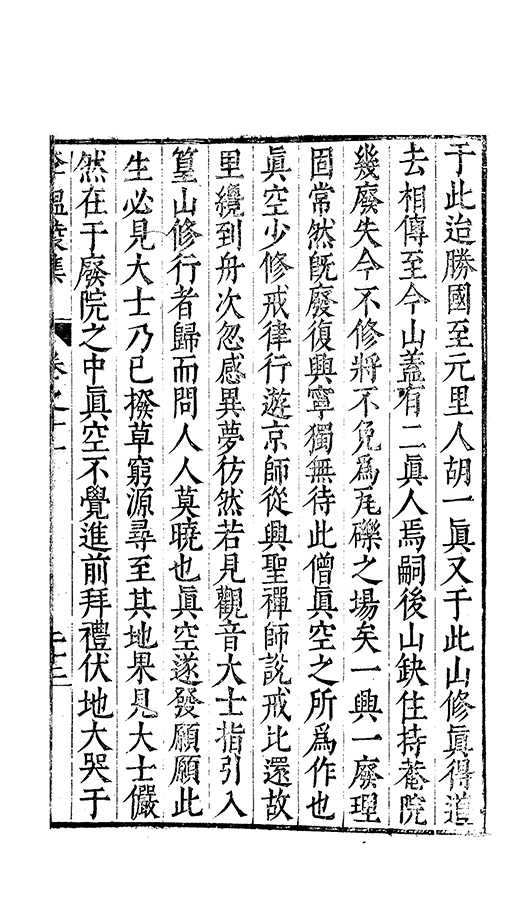 于此迨勝國至元里人胡一眞又于此山修眞得道
去相傳至今山蓋有二眞人焉嗣後山缺住持菴院
幾廢失今不修將不免爲瓦礫之場矣一興一廢理
固常然旣廢復興寧獨無待此僧眞空之所爲作也
眞空少修戒律行遊京師從興聖禪師說戒比還故
里纔到舟次忽感異夢彷然若見觀音大士指引入
篁山修行者歸而問人人莫曉也眞空遂發願願此
生必見大士乃已撥草窮源尋至其地果見大士儼
然在于廢院之中眞空不覺進前拜禮伏地大哭于
李溫陵集 卷之十一 二十三